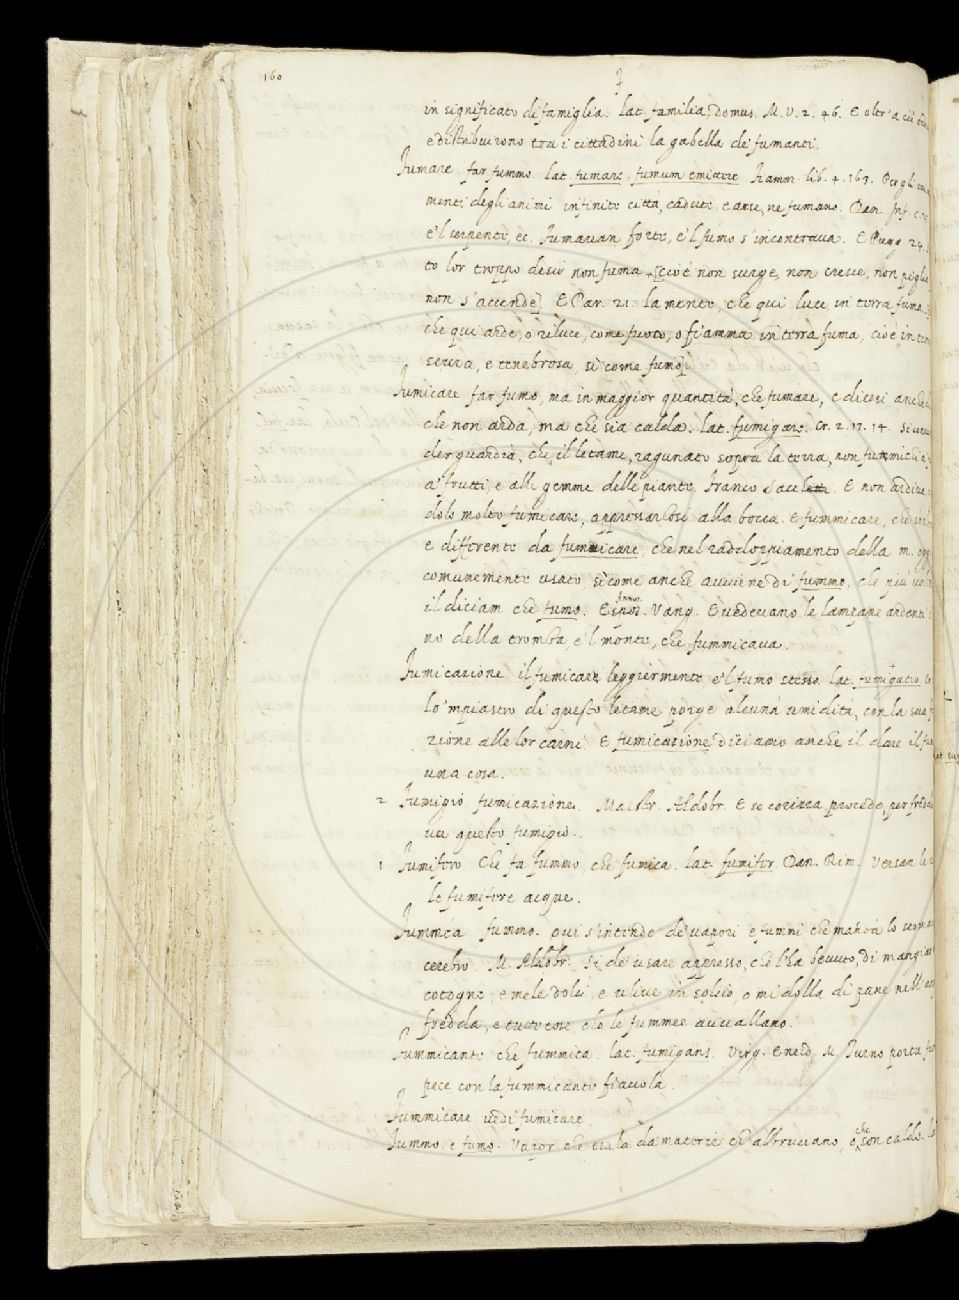 160
F
in significato di famiglia. lat. familia, domus. M. V. 2. 46. E oltr' a ciò
e distribuirono tra i cittadini la gabella de' fumanti.
Fumare. far fummo. lat. fumare, fumum emittere. Fiamm. lib. 4. 163. Per gli
menti degli animi infinite città, cadute e arse, ne fumano. Dan. Inf.
e 'l serpente, ec. Fumavan forte, e 'l fumo s'incontrava. E Purg. 24.
to lor troppo desio non fuma [cioè non surge, non cresce, non piglia
non s'accende] E Par. 21. la mente, che qui luce in terra fuma
che qui arde, o riluce, come fuoco, o fiamma in terra fuma, cioè in
scura, e tenebrosa sì come fumo]
Fumicare far fumo, ma in maggior quantità, che fumare, e dicesi anche
che non arda, ma che sia calda. lat. fumigare. Cr. 2. 13. 14.
der guardia, che il letame, ragunato sopra la terra, non fummichi
a' frutti, e alle gemme delle piante. Franco Sacch. E non
dolo molto fumicare, appressarlosi alla bocca. E fummicare, che
è differente da fumicare, che nel raddoppiamento della m. oggi
comunemente usato, sì come anche avviene di fummo, che più
il diciam che fumo. Espos. Vang. E vedevano le lampane ardenti
no della tromba, e 'l monte, che fummicava.
Fumicazione il fumicare leggiermente e 'l fumo stesso. lat. fumigatio.
lo 'mpiastro di questo letame porge alcuna umidità, con la sua
zione alle lor carni. E fumicazione diciamo anche il dare il
una cosa.
2 Fumigio fumicazione. Maestr. Aldobr. E se corizza procede, per
questo fumigio.
1 Fumifero Che fa fummo, che fumica. lat. fumifer. Dan. Rim. Versan le
le fumifere acque.
Fummea fummo. qui s'intende de' vapori e fummi che manda lo
cerebro. M. Aldobr. Si dee usare appresso, che l'ha bevuto, di
cotogne, e mele dolci, e ulive in solcio, o midolla di pane nell'
fredda, e tutte cose, che le fummee avvallano.
Fummicante che fummica. lat. fumigans. Virg. Eneid. M. Turno porta
pece con la fummicante fiaccola.
Fummicare vedi fumicare.
Fummo, e fumo. Vapor che esala da materie che abbruciano, o che son calde.